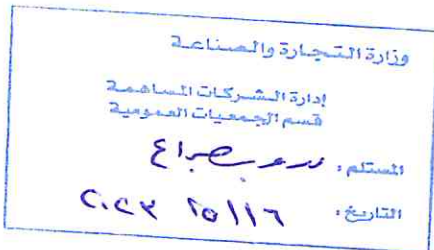 وزارة التجارة والصناعة
إدارة الشركات المساهمة
قسم الجمعيات العمومية
المستلم :
التاريخ :